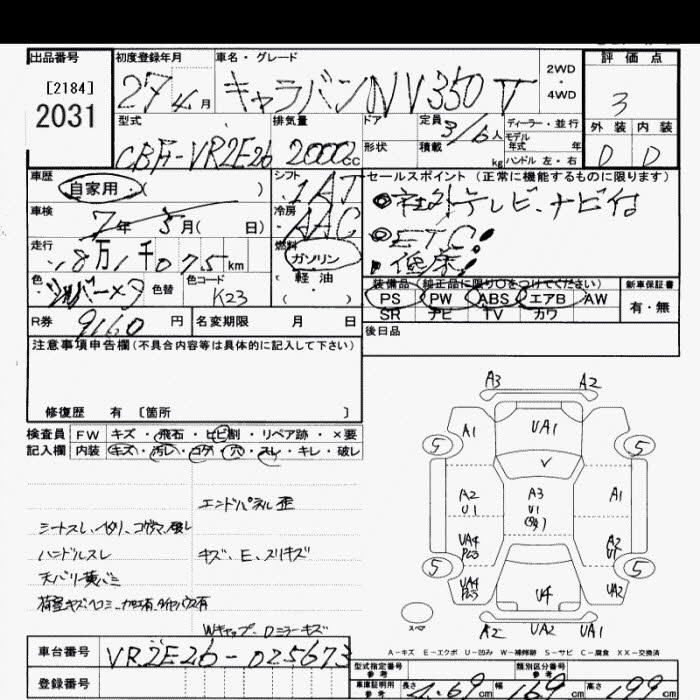 出品番号
[2184]
2031
初度登録年月
27年 4月
車名・グレード
キャラバンNV350
2WD
・
4WD
評価点
3
外装 内装
D D
型式
CBF-VR2E26
排気量
2000cc
ドア
形状
定員 3/6人
積載 kg
ディーラー・並行
モデル
年式 年
ハンドル 左・右
車歴
自家用・( )
シフト
IAT
車検
7年 5月( 日)
冷房
AAC
走行
18万1千075km
燃料
ガソリン
(軽油)
色
シルバーメタ
色替
色コード
K23
R券 9160円
名変期限 月 日
セールスポイント(正常に機能するものに限ります)
◎社外テレビ、ナビ付
◎ETC!
低床!
装備品(純正品に限り○をつけてください)
PS PW ABS エアB AW
SR ナビ TV カワ
新車保証書
有・無
後日品
注意事項申告欄(不具合内容等は具体的に記入して下さい)
修復歴 有〔箇所 〕
検査員 FW キズ・飛石・ヒビ割・リペア跡・×要
記入欄 内装 キズ・汚レ・コゲ・穴・スレ・キレ・破レ
エンドパネル歪
ハンドルスレ
キズ、E、スリキズ
天バリ黄バミ
Wキャップ、Dミラーキズ
A3 A2
A1 UA1
5 5
A2 A3 A1
U1 U1
UA4 A2
5 5
UA4 U4 UA2
スペア
A2 UA2 UA1
A-キズ E-エクボ U-凹み W-補修跡 S-サビ C-腐食 XX-交換済
車台番号 VR2E26-025673
登録番号
型式指定番号
参考
類別区分番号
参考
車庫証明用
参考
長さ 4.69cm 幅 169cm 高さ 199cm